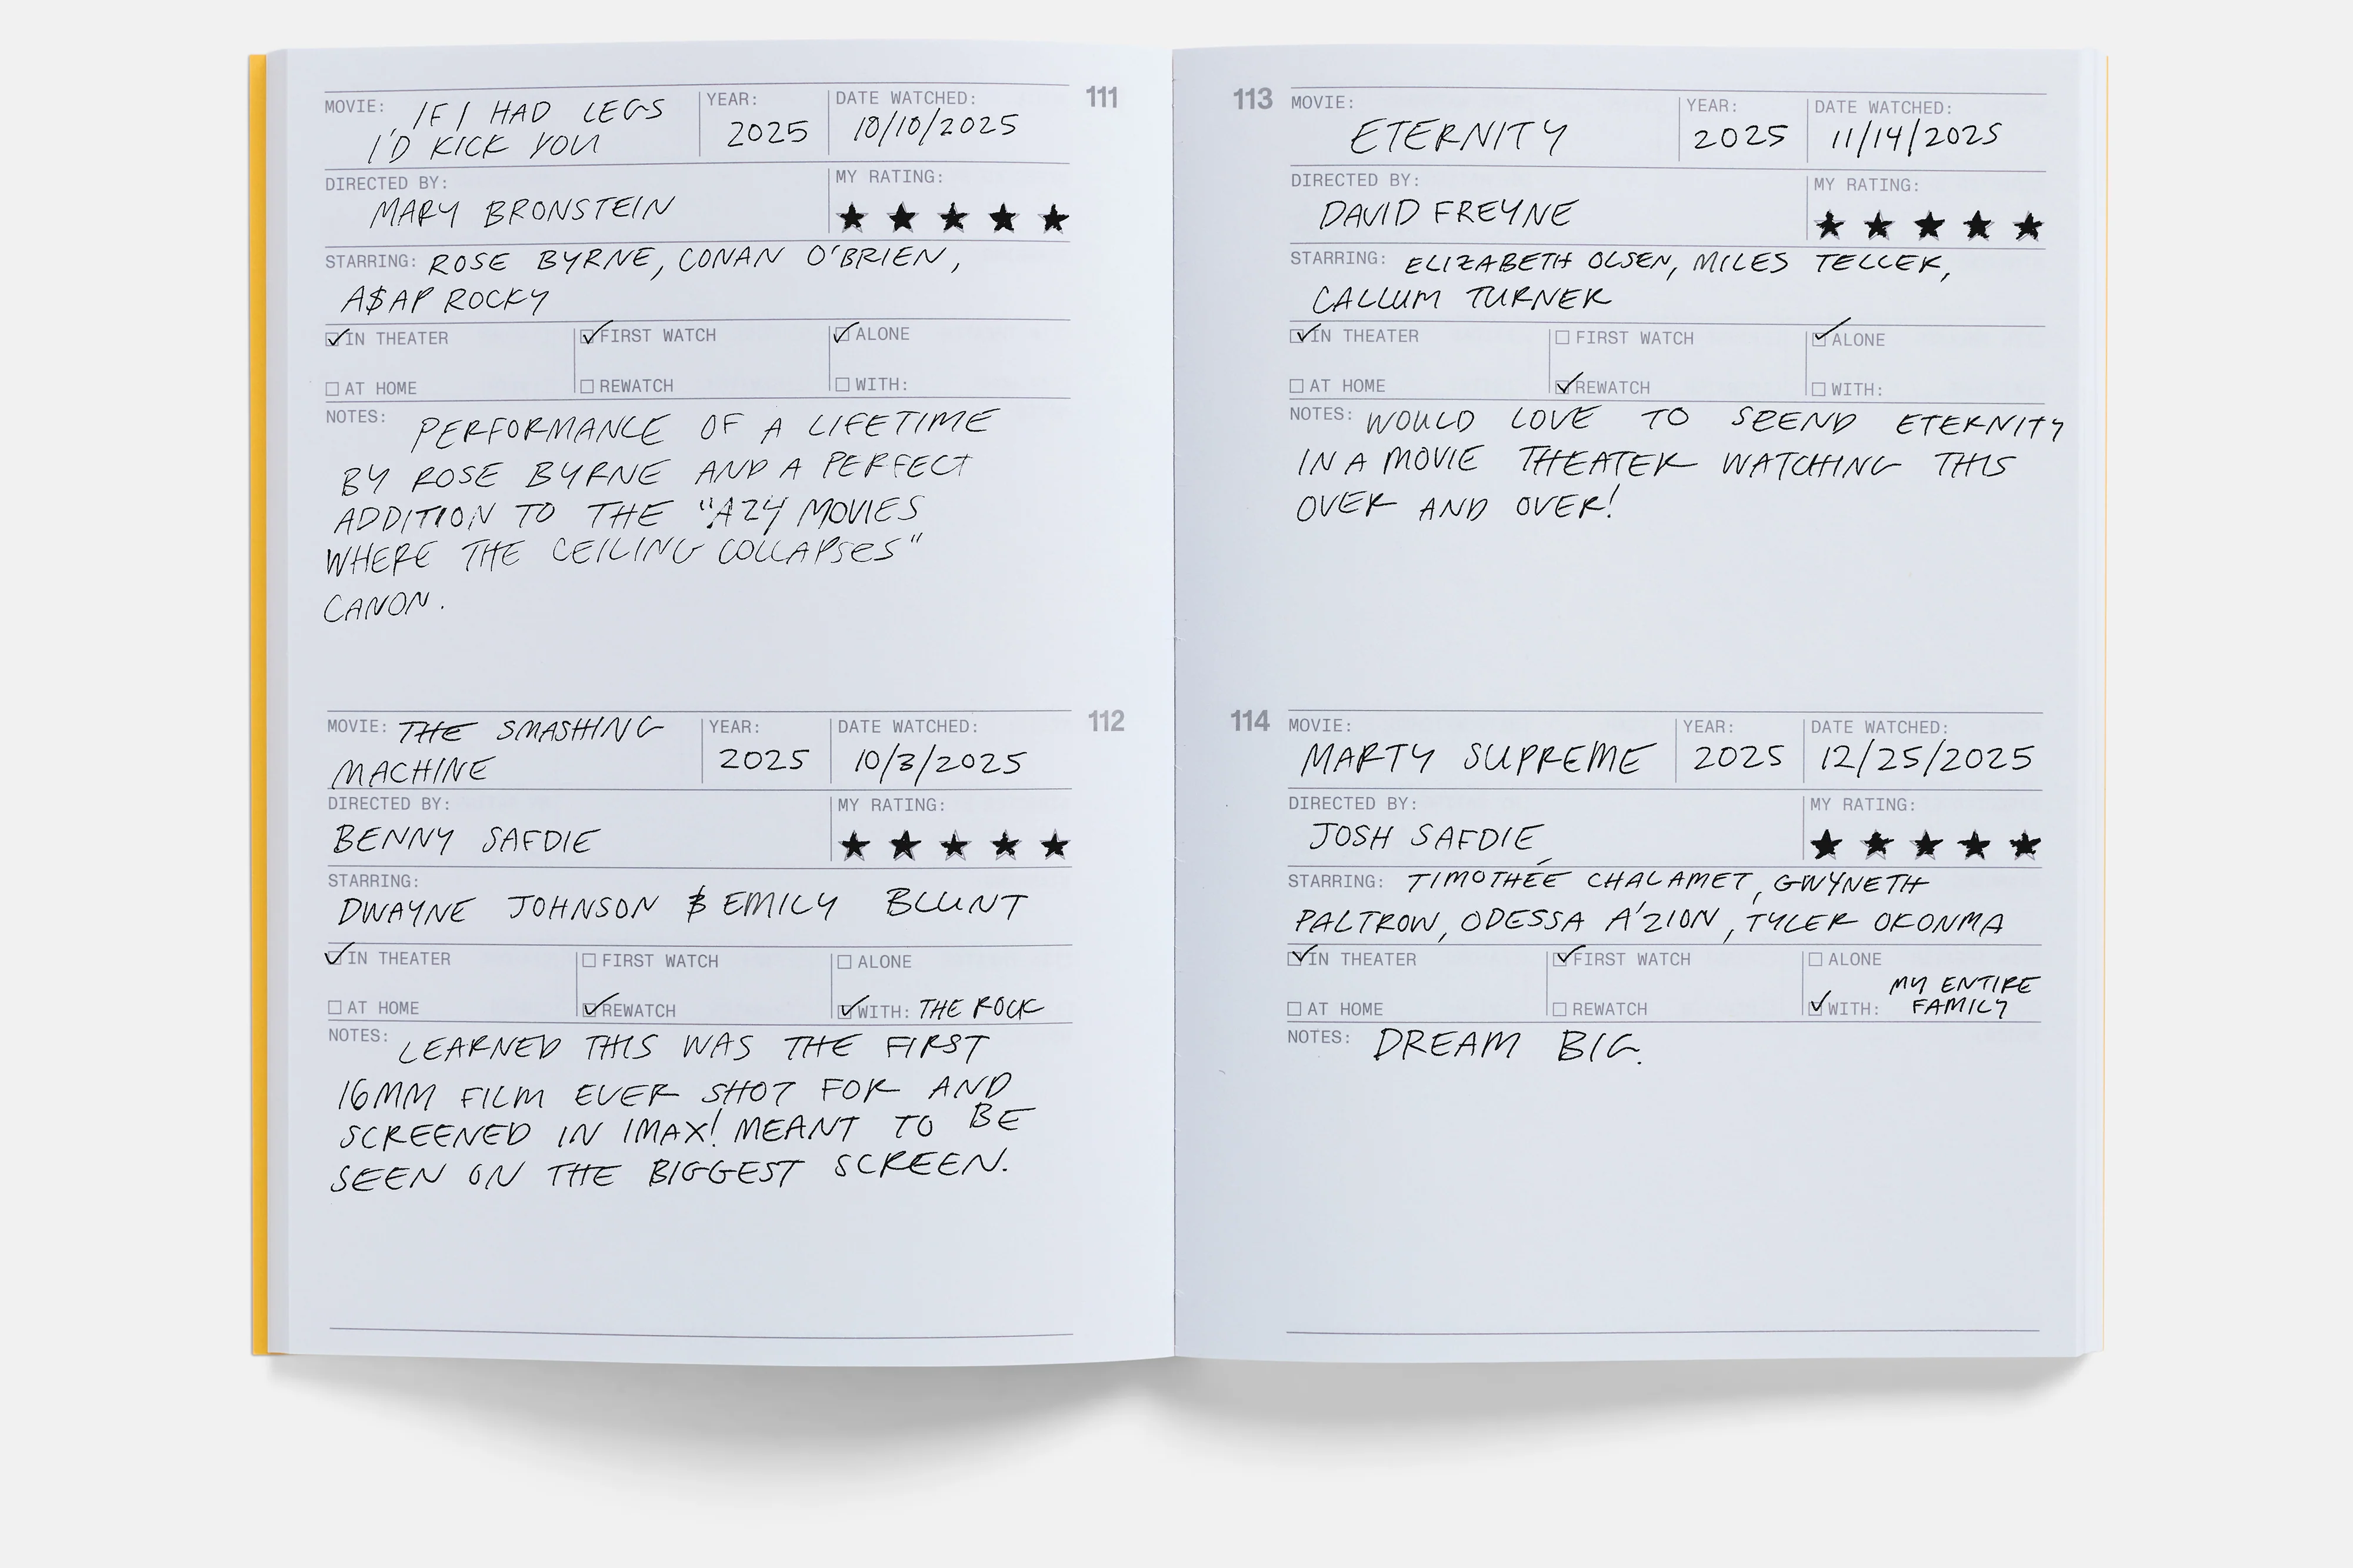 111
MOVIE: IF I HAD LEGS
I'D KICK YOU
YEAR:
2025
DATE WATCHED:
10/10/2025
DIRECTED BY:
MARY BRONSTEIN
MY RATING:
★ ★ ★ ★ ★
STARRING: ROSE BYRNE, CONAN O'BRIEN,
A$AP ROCKY
☑ IN THEATER
☑ FIRST WATCH
☑ ALONE
☐ AT HOME
☐ REWATCH
☐ WITH:
NOTES: PERFORMANCE OF A LIFETIME
BY ROSE BYRNE AND A PERFECT
ADDITION TO THE "A24 MOVIES
WHERE THE CEILING COLLAPSES"
CANON.
112
MOVIE: THE SMASHING
MACHINE
YEAR:
2025
DATE WATCHED:
10/3/2025
DIRECTED BY:
BENNY SAFDIE
MY RATING:
★ ★ ★ ★ ★
STARRING:
DWAYNE JOHNSON & EMILY BLUNT
☑ IN THEATER
☐ FIRST WATCH
☐ ALONE
☐ AT HOME
☑ REWATCH
☑ WITH: THE ROCK
NOTES: LEARNED THIS WAS THE FIRST
16MM FILM EVER SHOT FOR AND
SCREENED IN IMAX! MEANT TO BE
SEEN ON THE BIGGEST SCREEN.
113
MOVIE:
ETERNITY
YEAR:
2025
DATE WATCHED:
11/14/2025
DIRECTED BY:
DAVID FREYNE
MY RATING:
★ ★ ★ ★ ★
STARRING: ELIZABETH OLSEN, MILES TELLER,
CALLUM TURNER
☑ IN THEATER
☐ FIRST WATCH
☑ ALONE
☐ AT HOME
☑ REWATCH
☐ WITH:
NOTES: WOULD LOVE TO SPEND ETERNITY
IN A MOVIE THEATER WATCHING THIS
OVER AND OVER!
114
MOVIE:
MARTY SUPREME
YEAR:
2025
DATE WATCHED:
12/25/2025
DIRECTED BY:
JOSH SAFDIE
MY RATING:
★ ★ ★ ★ ★
STARRING: TIMOTHÉE CHALAMET, GWYNETH
PALTROW, ODESSA A'ZION, TYLER OKONMA
☑ IN THEATER
☑ FIRST WATCH
☐ ALONE
☐ AT HOME
☐ REWATCH
☑ WITH: MY ENTIRE
FAMILY
NOTES: DREAM BIG.